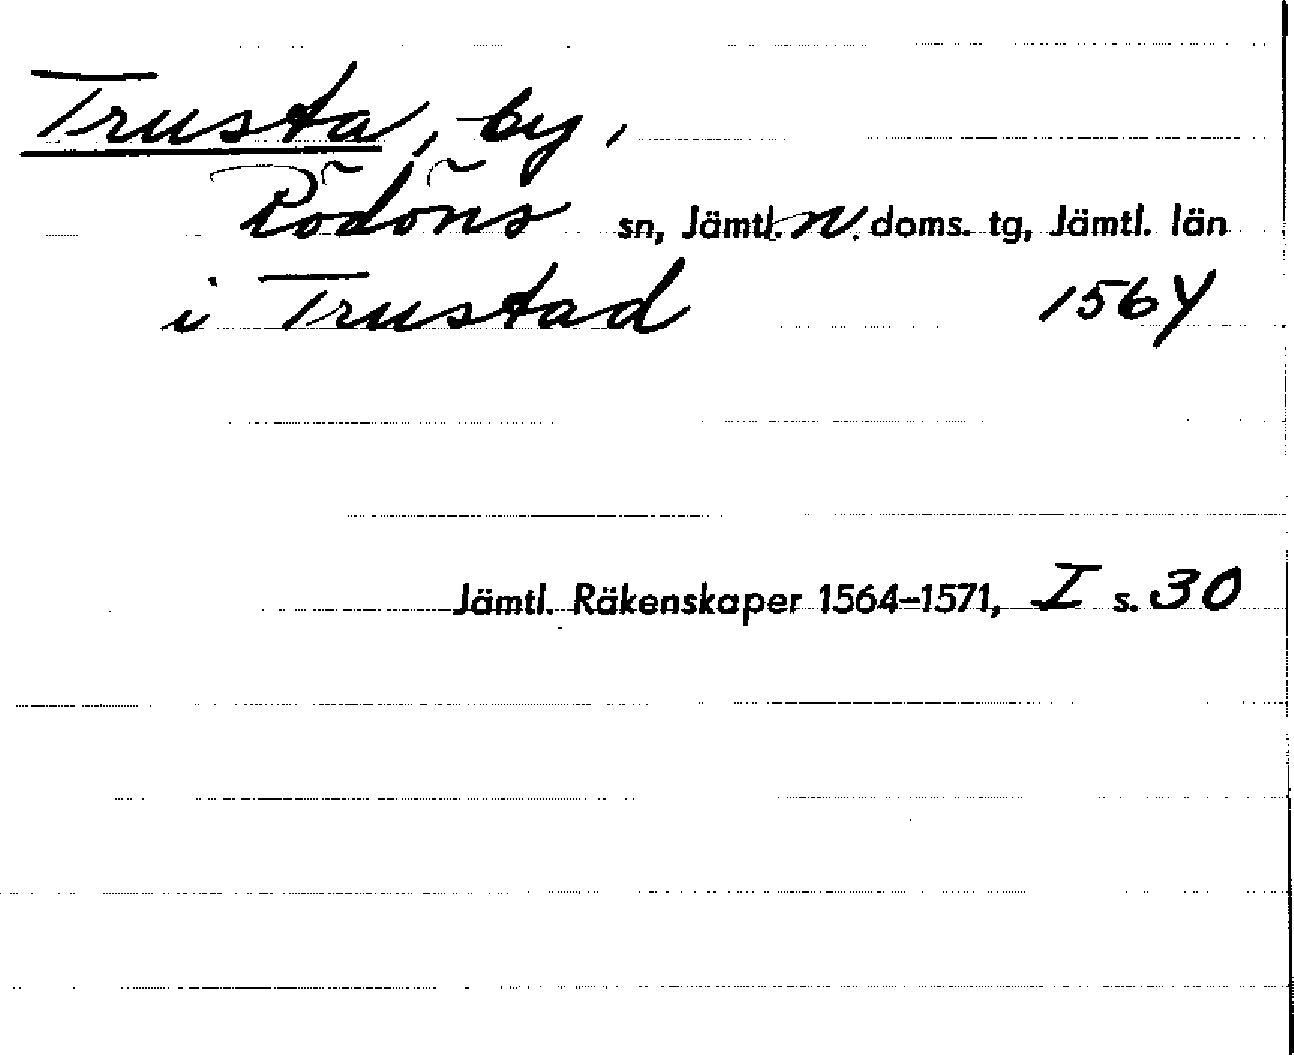 Trusta, by,
Rödöns sn, Jämtl. N. doms. tg, Jämtl. län
i Trustad 1564
Jämtl. Räkenskaper 1564–1571, I s. 30